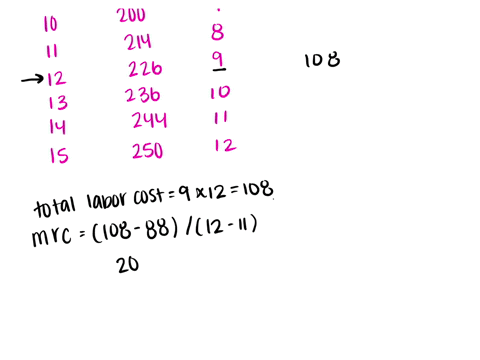 10 200 .
11 214 8
→12 226 9 108
13 236 10
14 244 11
15 250 12
total labor cost = 9 x 12 = 108
mrc = (108 - 88) / (12 - 11)
20